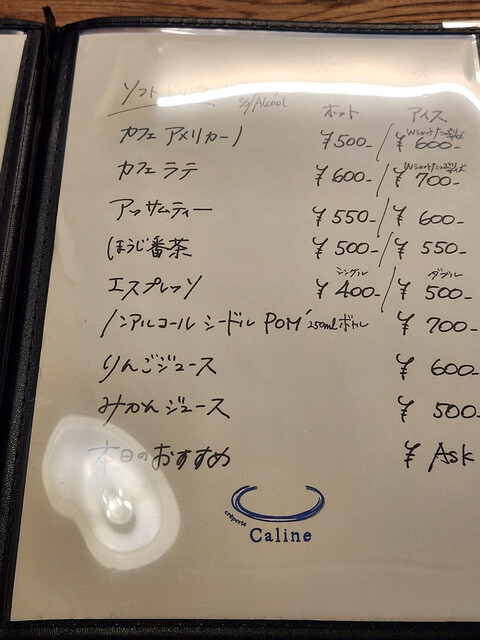 ソフトドリンク
So/Alcool
ホット アイス
カフェ アメリカーノ ¥500- / Wショット/たっぷりサイズ ¥600-
カフェ ラテ ¥600- / Wショット/たっぷりサイズ ¥700-
アッサムティー ¥550- / ¥600-
ほうじ番茶 ¥500- / ¥550-
エスプレッソ シングル ¥400- / ダブル ¥500-
ノンアルコール シードル POM' 250mlボトル ¥700-
りんごジュース ¥600-
みかんジュース ¥500-
本日のおすすめ ¥ Ask
crêperie
Caline